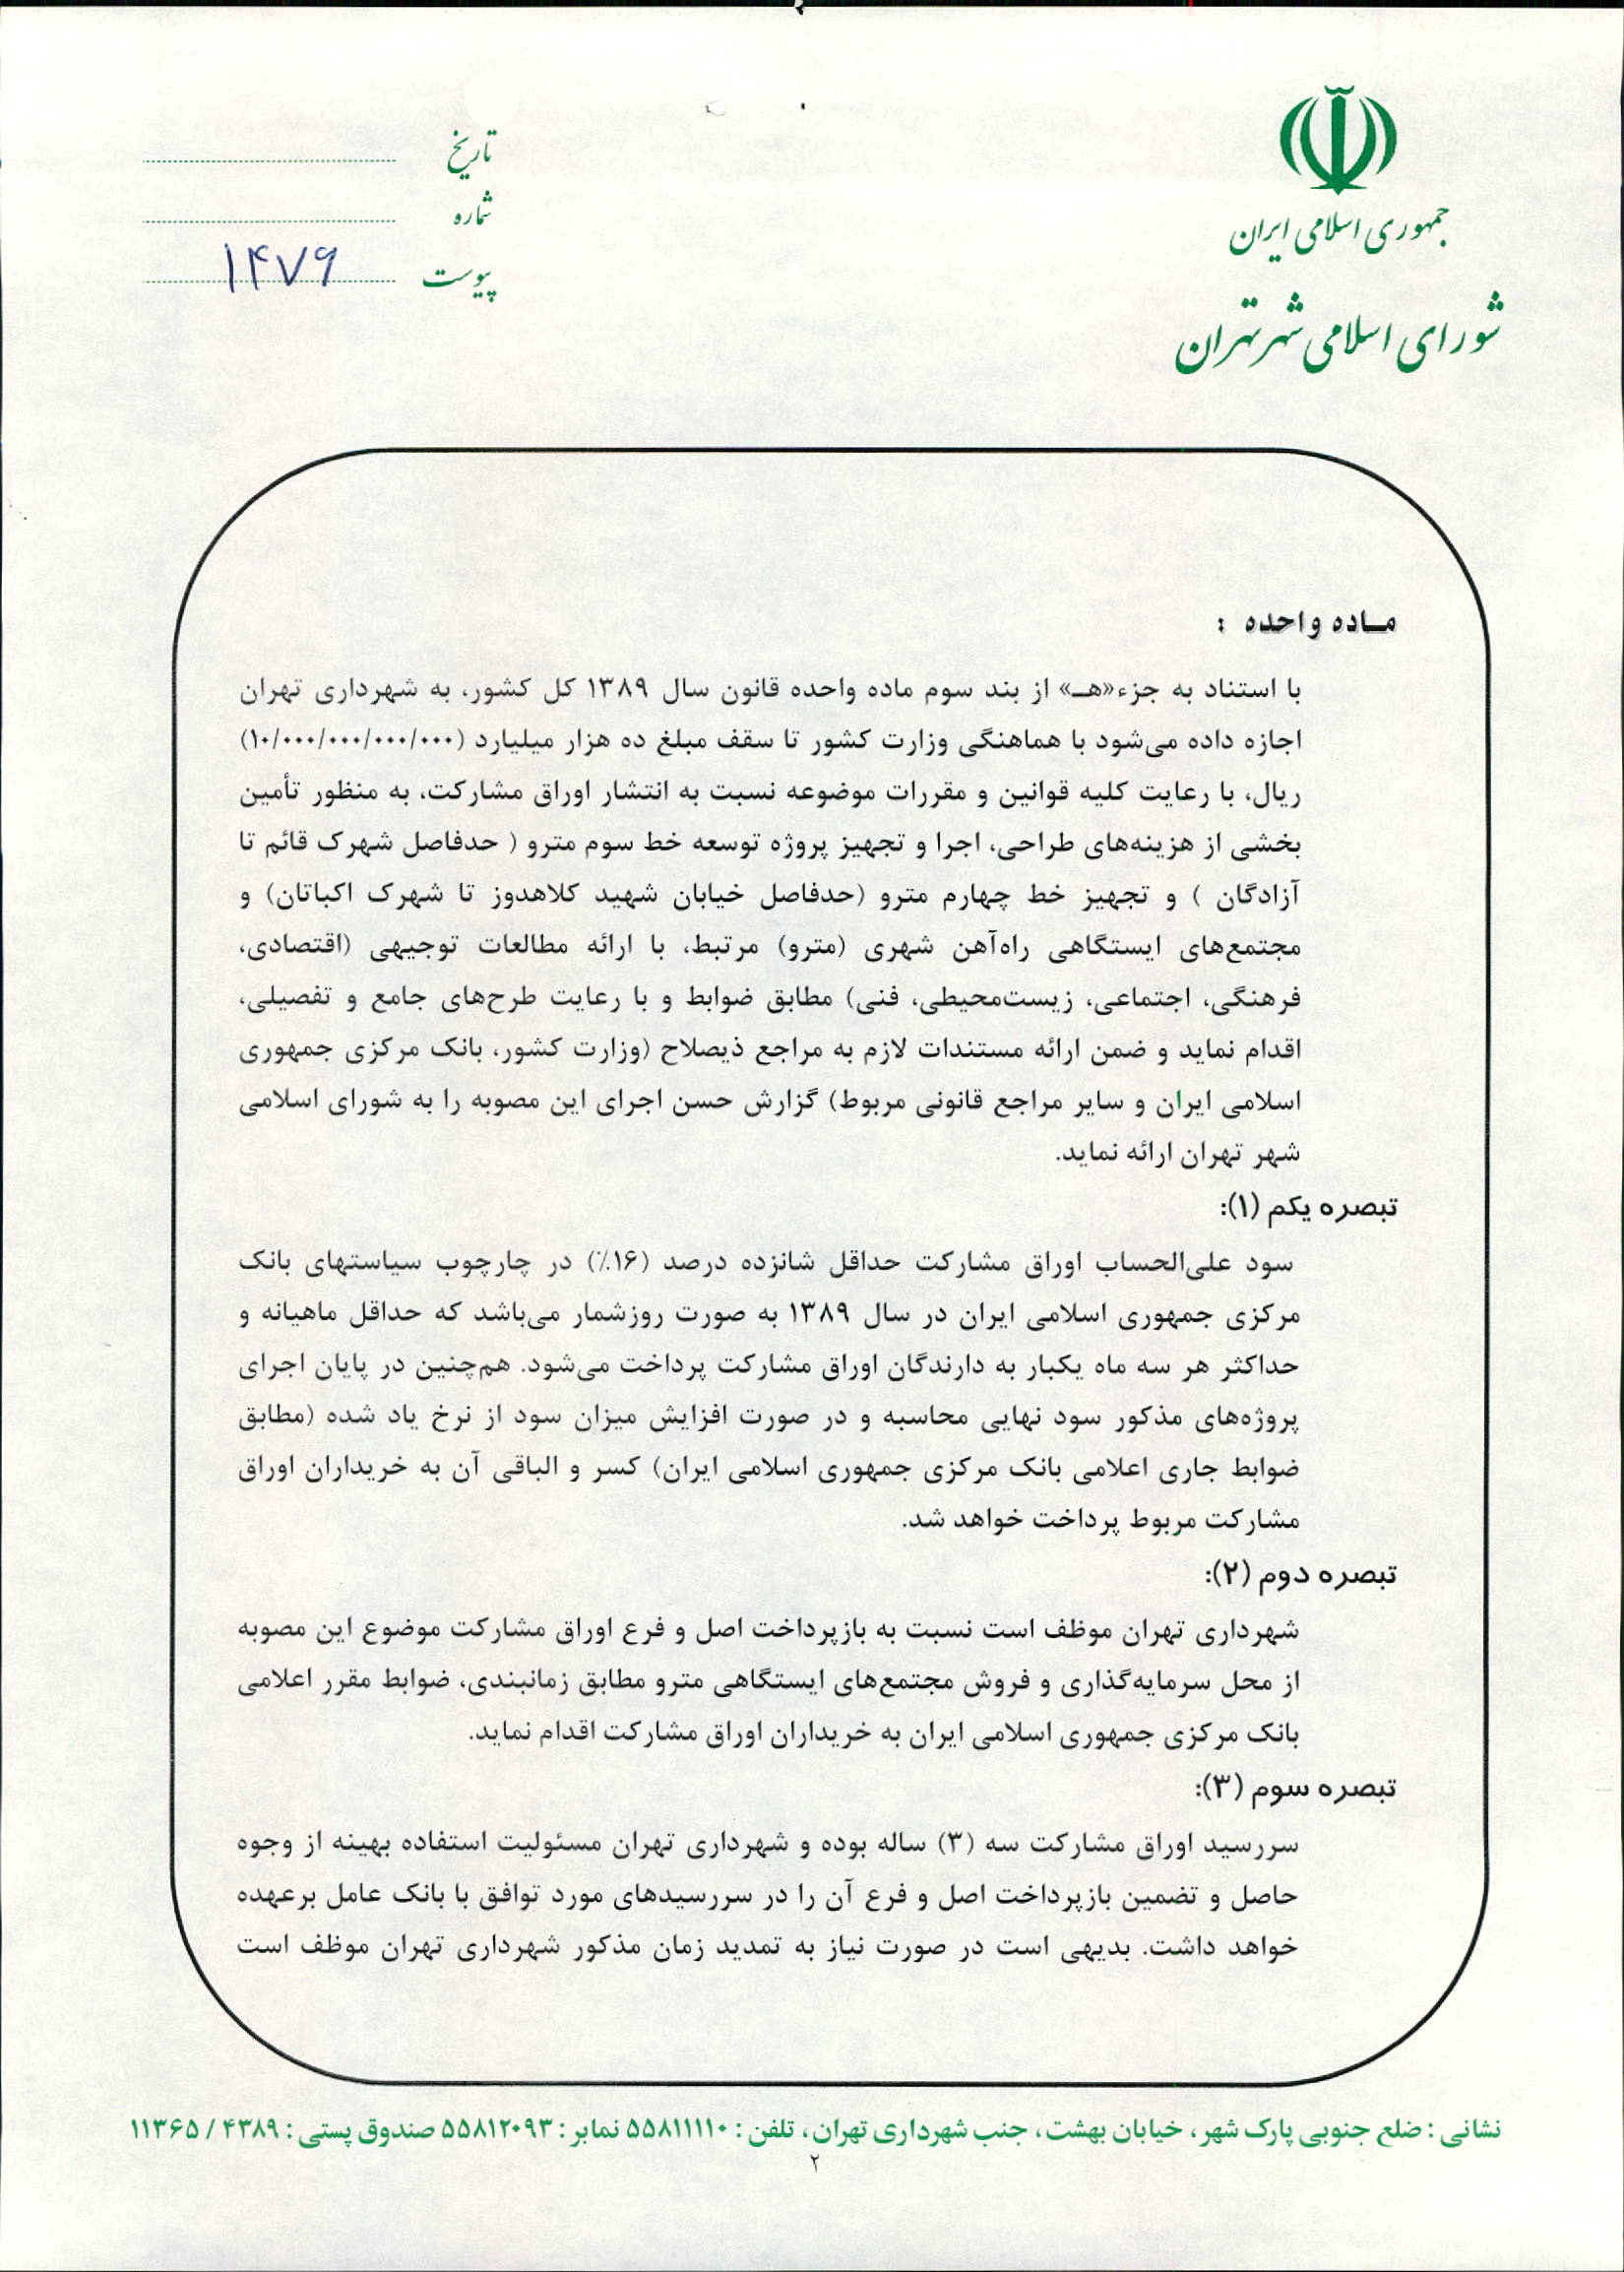 جمهوری اسلامی ایران
شورای اسلامی شهر تهران
تاریخ
شماره
پیوست ۱۴۷۹
مـاده واحده :
با استناد به جزء«هـ» از بند سوم ماده واحده قانون سال ۱۳۸۹ کل کشور، به شهرداری تهران
اجازه داده می‌شود با هماهنگی وزارت کشور تا سقف مبلغ ده هزار میلیارد (۱۰/۰۰۰/۰۰۰/۰۰۰/۰۰۰)
ریال، با رعایت کلیه قوانین و مقررات موضوعه نسبت به انتشار اوراق مشارکت، به منظور تأمین
بخشی از هزینه‌های طراحی، اجرا و تجهیز پروژه توسعه خط سوم مترو ( حدفاصل شهرک قائم تا
آزادگان ) و تجهیز خط چهارم مترو (حدفاصل خیابان شهید کلاهدوز تا شهرک اکباتان) و
مجتمع‌های ایستگاهی راه‌آهن شهری (مترو) مرتبط، با ارائه مطالعات توجیهی (اقتصادی،
فرهنگی، اجتماعی، زیست‌محیطی، فنی) مطابق ضوابط و با رعایت طرح‌های جامع و تفصیلی،
اقدام نماید و ضمن ارائه مستندات لازم به مراجع ذیصلاح (وزارت کشور، بانک مرکزی جمهوری
اسلامی ایران و سایر مراجع قانونی مربوط) گزارش حسن اجرای این مصوبه را به شورای اسلامی
شهر تهران ارائه نماید.
تبصره یکم (۱):
سود علی‌الحساب اوراق مشارکت حداقل شانزده درصد (۱۶٪) در چارچوب سیاستهای بانک
مرکزی جمهوری اسلامی ایران در سال ۱۳۸۹ به صورت روزشمار می‌باشد که حداقل ماهیانه و
حداکثر هر سه ماه یکبار به دارندگان اوراق مشارکت پرداخت می‌شود. هم‌چنین در پایان اجرای
پروژه‌های مذکور سود نهایی محاسبه و در صورت افزایش میزان سود از نرخ یاد شده (مطابق
ضوابط جاری اعلامی بانک مرکزی جمهوری اسلامی ایران) کسر و الباقی آن به خریداران اوراق
مشارکت مربوط پرداخت خواهد شد.
تبصره دوم (۲):
شهرداری تهران موظف است نسبت به بازپرداخت اصل و فرع اوراق مشارکت موضوع این مصوبه
از محل سرمایه‌گذاری و فروش مجتمع‌های ایستگاهی مترو مطابق زمانبندی، ضوابط مقرر اعلامی
بانک مرکزی جمهوری اسلامی ایران به خریداران اوراق مشارکت اقدام نماید.
تبصره سوم (۳):
سررسید اوراق مشارکت سه (۳) ساله بوده و شهرداری تهران مسئولیت استفاده بهینه از وجوه
حاصل و تضمین بازپرداخت اصل و فرع آن را در سررسیدهای مورد توافق با بانک عامل برعهده
خواهد داشت. بدیهی است در صورت نیاز به تمدید زمان مذکور شهرداری تهران موظف است
نشانی : ضلع جنوبی پارک شهر، خیابان بهشت، جنب شهرداری تهران، تلفن : ۵۵۸۱۱۱۱۰ نمابر : ۵۵۸۱۲۰۹۳ صندوق پستی : ۴۳۸۹ / ۱۱۳۶۵
۲